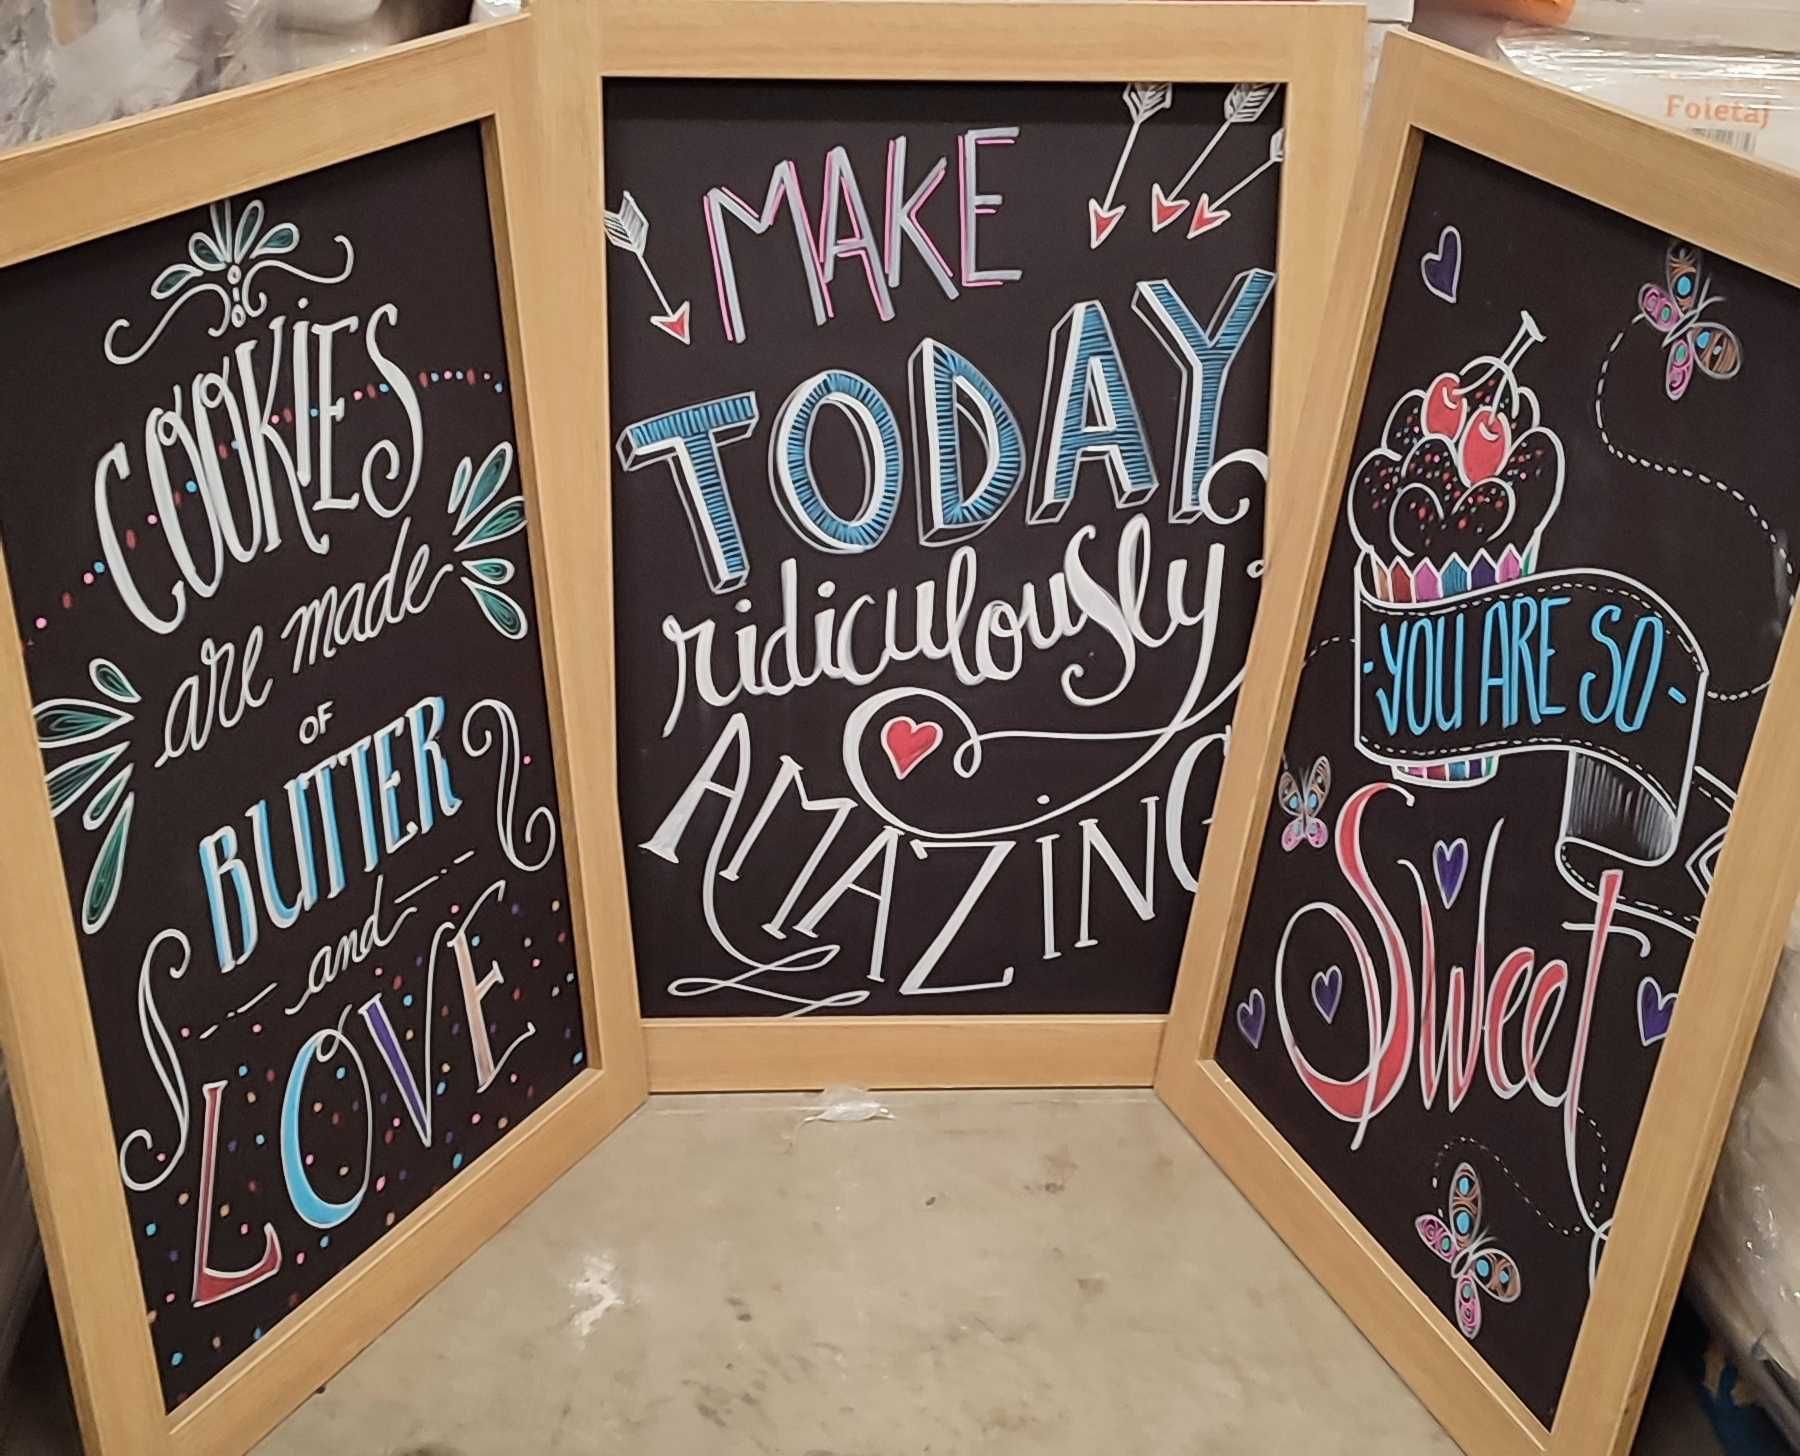 COOKIES
are made
OF
BUTTER
and
LOVE
MAKE
TODAY
ridiculously
AMAZING
YOU ARE SO
Sweet
Foietaj